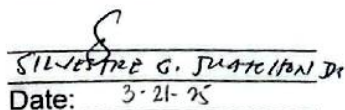 SILVESTRE G. SUATCHON Dr
Date: 3-21-25